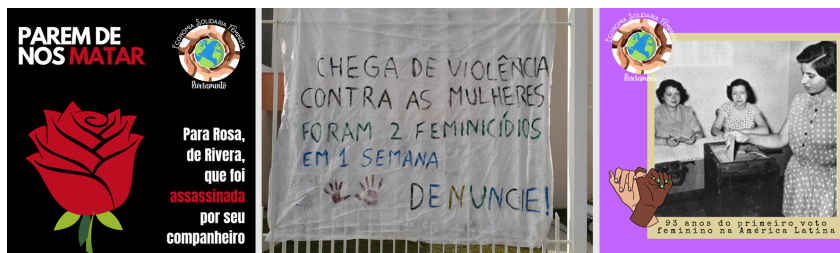 PAREM DE
NOS MATAR
ECONOMIA SOLIDÁRIA FEMINISTA
Livramento
Para Rosa,
de Rivera,
que foi
assassinada
por seu
companheiro
CHEGA DE VIOLÊNCIA
CONTRA AS MULHERES
FORAM 2 FEMINICÍDIOS
EM 1 SEMANA
DENUNCIE!
ECONOMIA SOLIDÁRIA FEMINISTA
Livramento
93 anos do primeiro voto
feminino na América Latina